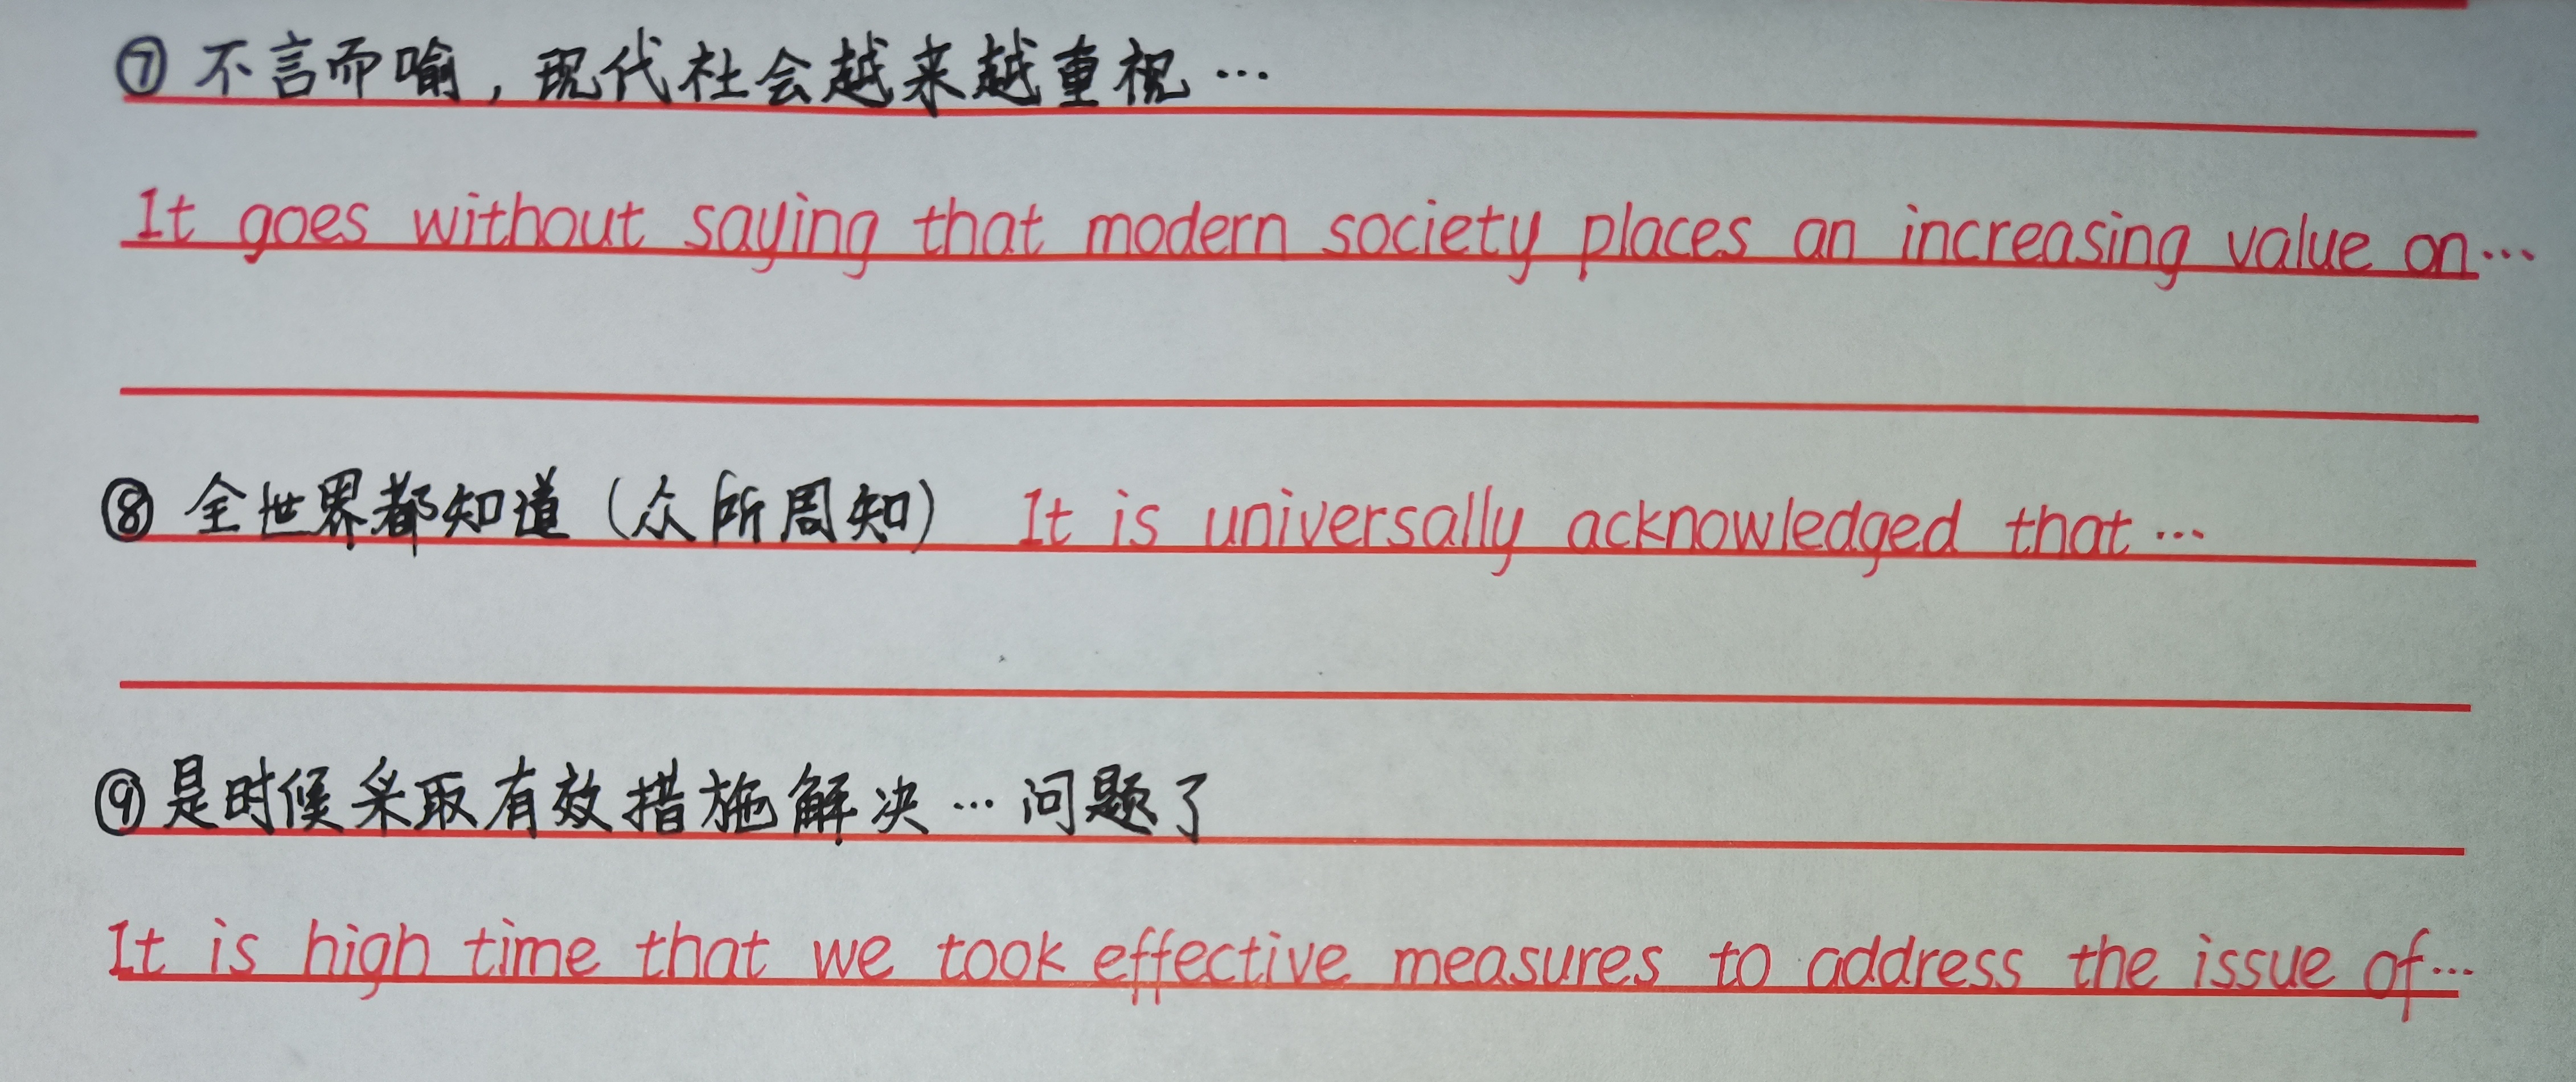 ⑦ 不言而喻，现代社会越来越重视…
It goes without saying that modern society places an increasing value on…
⑧ 全世界都知道（众所周知） It is universally acknowledged that…
⑨ 是时候采取有效措施解决…问题了
It is high time that we took effective measures to address the issue of…